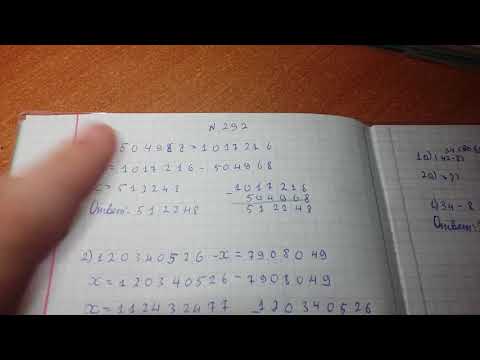 N 292
504988 = 1017216
= 1017216 - 504968
= 512248
1017216
504968
512248
Ответ: 512248
2) 120340526 - x = 7908049
x = 120340526 - 7908049
x = 112432477
120340526